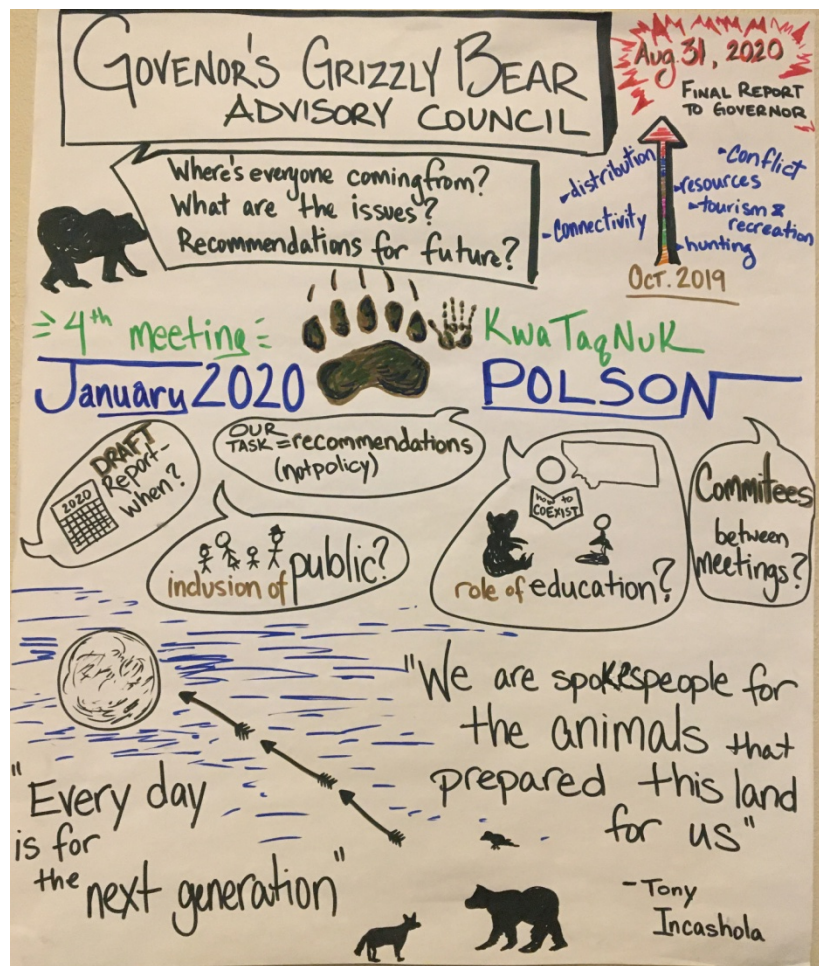 GOVENOR'S GRIZZLY BEAR
ADVISORY COUNCIL
Aug. 31, 2020
FINAL REPORT
TO GOVERNOR
Where's everyone coming from?
What are the issues?
Recommendations for future?
distribution
connectivity
conflict
resources
tourism &
recreation
hunting
OCT. 2019
4th meeting
KwaTaqNuK
January 2020
POLSON
DRAFT
Report-
when?
2020
OUR
TASK = recommendations
(not policy)
inclusion of public?
HOW TO
COEXIST
role of education?
Commitees
between
meetings?
"We are spokespeople for
the animals that
prepared this land
for us"
- Tony
Incashola
"Every day
is for
the next generation"